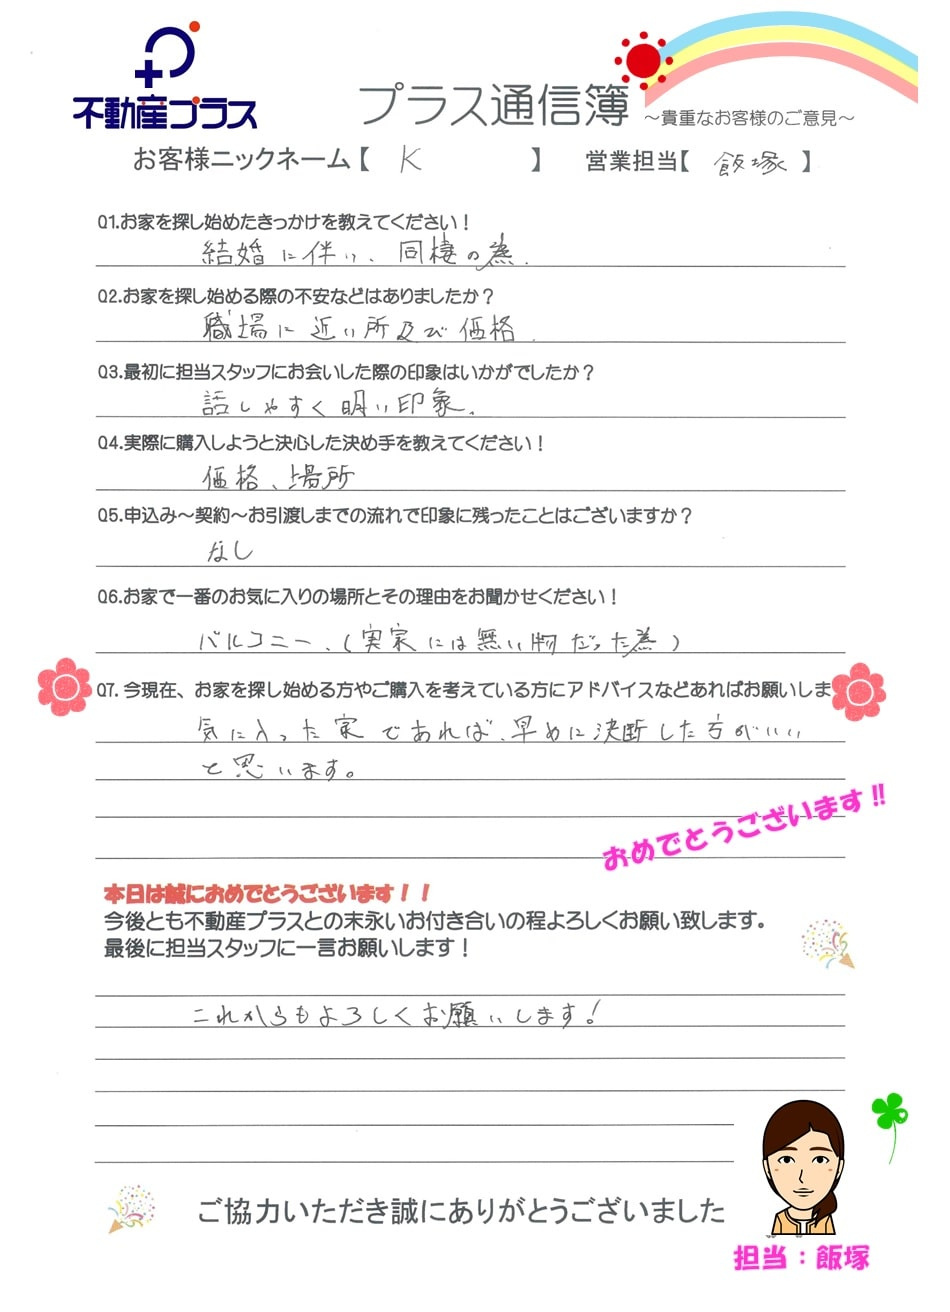 不動産プラス
プラス通信簿 ～貴重なお客様のご意見～
お客様ニックネーム【 K 】 営業担当【 飯塚 】
Q1.お家を探し始めたきっかけを教えてください！
結婚に伴い、同棲の為.
Q2.お家を探し始める際の不安などはありましたか？
職場に近い所及び価格.
Q3.最初に担当スタッフにお会いした際の印象はいかがでしたか？
話しやすく明い印象.
Q4.実際に購入しようと決心した決め手を教えてください！
価格、場所
Q5.申込み～契約～お引渡しまでの流れで印象に残ったことはございますか？
なし
Q6.お家で一番のお気に入りの場所とその理由をお聞かせください！
バルコニー.(実家には無い物だった為)
Q7. 今現在、お家を探し始める方やご購入を考えている方にアドバイスなどあればお願いしま
気に入った家であれば、早めに決断した方がいい
と思います。
おめでとうございます!!
本日は誠におめでとうございます！！
今後とも不動産プラスとの末永いお付き合いの程よろしくお願い致します。
最後に担当スタッフに一言お願いします！
これからもよろしくお願いします!
ご協力いただき誠にありがとうございました
担当：飯塚